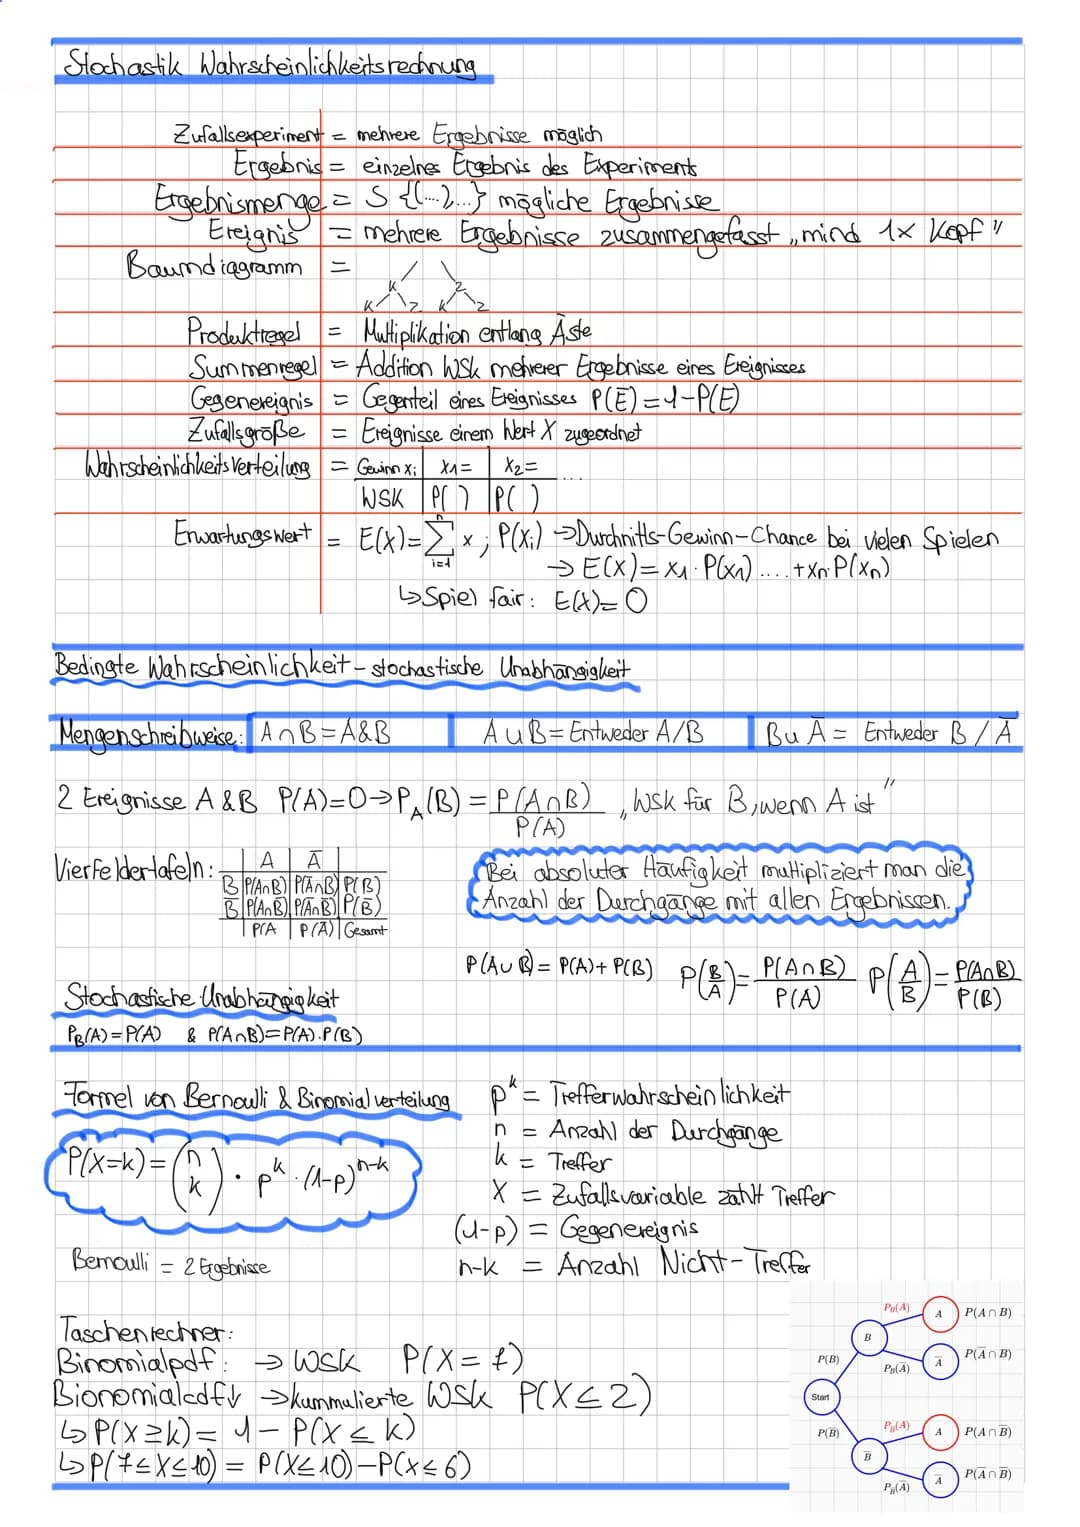 Stochastik Wahrscheinlichkeitsrechnung
Zufallsexperiment = mehrere Ergebnisse möglich
Ergebnis = einzelnes Ergebnis des Experiments
Ergebnismenge = S {(...),...} mögliche Ergebnisse
Ereignis = mehrere Ergebnisse zusammengefasst „mind 1x Kopf"
Baumdiagramm =
K Z
K Z K Z
Produktregel = Multiplikation entlang Äste
Summenregel = Addition WSK mehrerer Ergebnisse eines Ereignisses
Gegenereignis = Gegenteil eines Ereignisses P(Ē)=1-P(E)
Zufallsgröße = Ereignisse einem Wert X zugeordnet
Wahrscheinlichkeitsverteilung = Gewinn xi | x1= | x2= ...
WSK | P( ) | P( )
Erwartungswert = E(X)=∑ⁿᵢ₌₁ xi P(xi) → Durchnitts-Gewinn-Chance bei vielen Spielen
→ E(X)= x1·P(x1) .... +xn·P(xn)
↳ Spiel fair: E(X)=0
Bedingte Wahrscheinlichkeit - stochastische Unabhängigkeit
Mengenschreibweise: A∩B=A&B A∪B=Entweder A/B B∪Ā= Entweder B/Ā
2 Ereignisse A & B P(A)=0→P_A(B) = P(A∩B)/P(A) „WSK für B, wenn A ist"
Vierfeldertafeln: | A | Ā |
B | P(A∩B) | P(Ā∩B) | P(B)
B̄ | P(A∩B̄) | P(Ā∩B̄) | P(B̄)
| P(A | P(Ā) | Gesamt
Bei absoluter Häufigkeit multipliziert man die
Anzahl der Durchgänge mit allen Ergebnissen.
P(A∪B)= P(A)+P(B) P(B/A)= P(A∩B)/P(A) P(A/B)= P(A∩B)/P(B)
Stochastische Unabhängigkeit
P_B(A)=P(A) & P(A∩B)=P(A)·P(B)
Formel von Bernoulli & Binomialverteilung
P(X=k)= (n k) · p^k · (1-p)^n-k
Bernoulli = 2 Ergebnisse
p^k = Trefferwahrscheinlichkeit
n = Anzahl der Durchgänge
k = Treffer
X = Zufallsvariable zählt Treffer
(1-p) = Gegenereignis
n-k = Anzahl Nicht-Treffer
Taschenrechner:
Binomialpdf: → WSK P(X=7)
Bionomialcdf: → kummulierte WSK P(X≤2)
↳ P(X≥k)= 1- P(X≤k)
↳ P(7≤X≤10) = P(X≤10)-P(X≤6)
Start
P(B) B
P_B(A) A P(A∩B)
P_B(Ā) Ā P(Ā∩B)
P(B̄) B̄
P_B̄(A) A P(A∩B̄)
P_B̄(Ā) Ā P(Ā∩B̄)